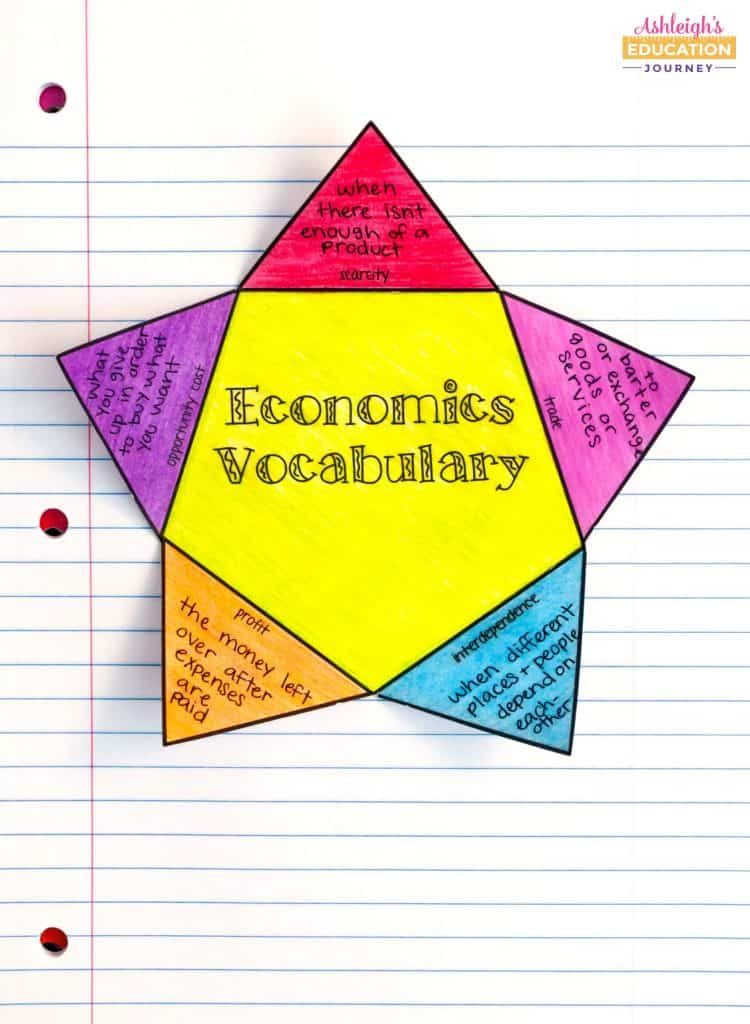 Ashleigh's
EDUCATION
JOURNEY
when
there isn't
enough of a
product
scarcity
what
you give
up in order
to buy what
you want
opportunity cost
Economics
Vocabulary
to
barter
or exchange
goods or
services
trade
profit
the money left
over after
expenses
are
paid
interdependence
when different
places + people
depend on
each-
other